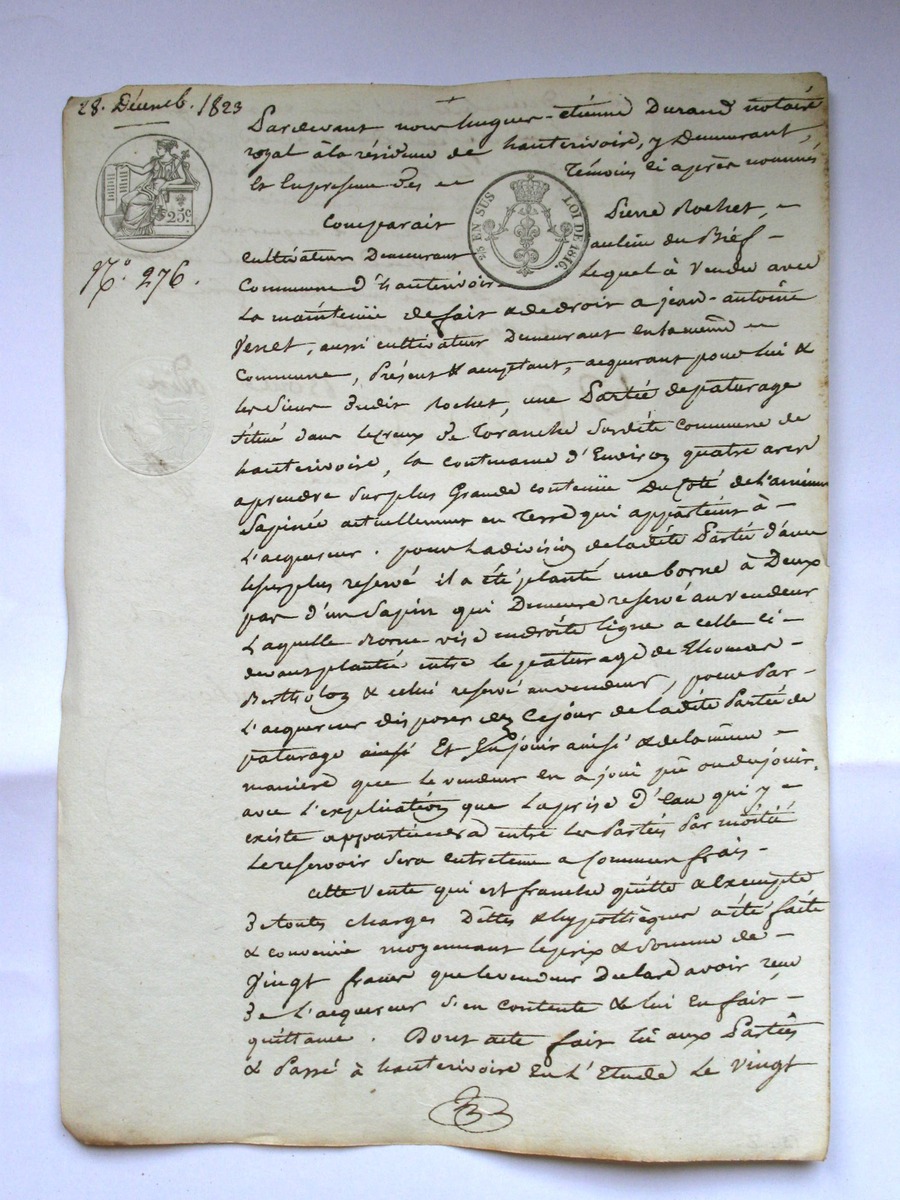 28. Décemb. 1823
Pardevant nous hugues-étienne Durand notaire
royal à la résidence de hauterivoire, y Demeurant,
Et En presence des témoins ci après nommés
25 c
25 EN SUS LOI DE 1816.
N.° 276.
Comparait Pierre Rochet,
Cultivateur Demeurant au lieu du Bief
Commune d'hauterivoire Lequel à Vendu avec
La maintenüe de fait & de droit a jean-antoine
Venet, aussi cultivateur Demeurant en la même
Commune, Présent & acceptant, acquerant pour lui &
les siens dudit Rochet, une Partie de paturage
situé dans le creux de Toranche susdite commune de
hauterivoire, la contenance d'Environ quatre ares
a prendre sur plus Grande contenüe Du Coté de l'ancienne
Sapinée actuellement en Terre qui appartient à
L'acquereur. pour la division de la dite Partie d'avec
le surplus reservé il a été planté une borne à Deux
pas d'un Sapin qui Demeure reservé au vendeur
Laquelle Borne vise en droite ligne a celle ci
devant plantée entre le paturage de Thomas
Bertholon & celui reservé au vendeur, pour Par
L'acquereur disposer dez Ce jour de la dite Partie de
paturage ainsi Et En jouir ainsi & de la même
manière que le vendeur en a joui pû ou du jouir,
avec l'explication que la prise d'Eau qui y
existe appartiendra entre les Parties Par moitié
Le reservoir sera entretenu a Commun frais
cette Vente qui est franche quitte & exempte
de toutes charges Dettes & hypothèques a été faite
& convenüe moyennant le prix & somme de
Vingt francs que le vendeur Declare avoir reçu
de l'acquereur s'en contente & lui En fait
quittance. Dont acte fait lû aux Parties
& Passé à hauterivoire En l'Etude Le vingt